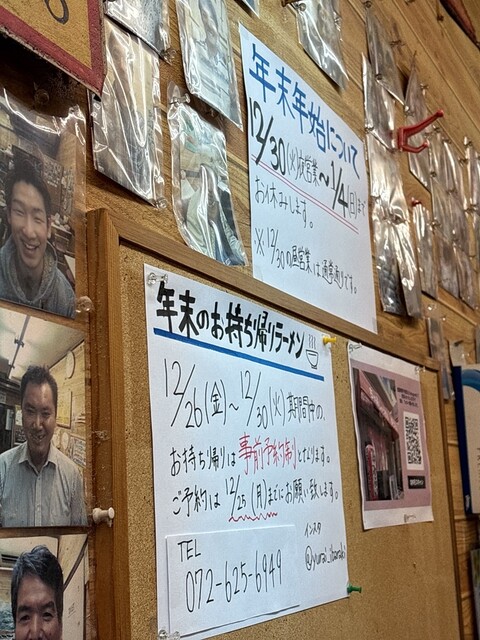 年末年始について
12/30(火)夜営業〜1/4(日)まで
お休みします。
※12/30の昼営業は通常通りです。
年末のお持ち帰りラーメン
12/26(金)〜12/30(火)期間中の
お持ち帰りは事前予約制となります。
ご予約は12/25(月)までにお願い致します。
TEL
072-625-6949
インスタ
@yurai_ibaraki